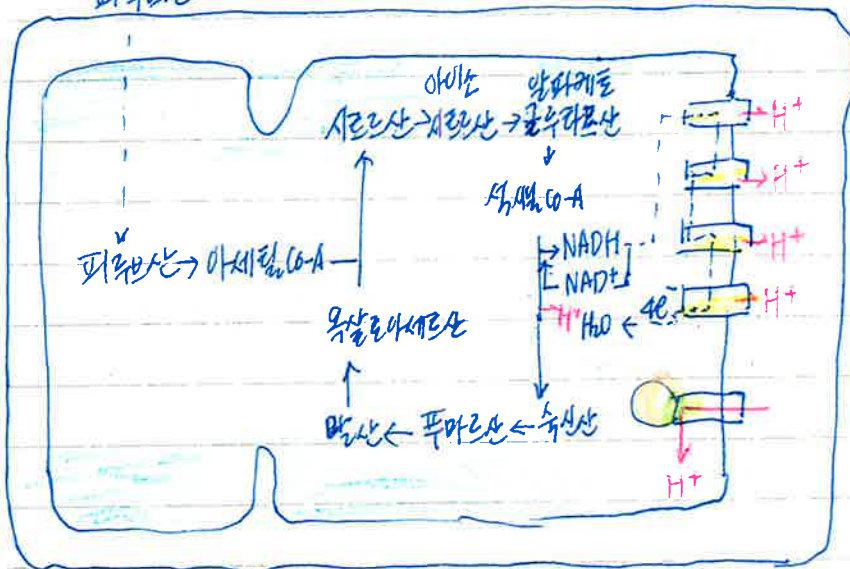 피루브산
아이소 알파케토
시트르산→시트르산→글루타르산
H+
석시닐 Co-A
H+
피루브산→아세틸 Co-A
NADH
H+
NAD+
옥살로아세트산
H+ H₂O ← 4e⁻
H+
말산←푸마르산←숙신산
H+